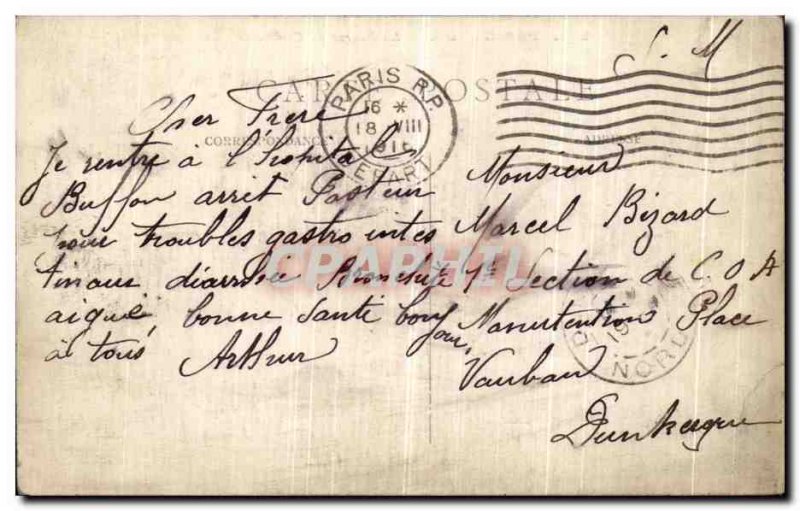 S. M
CARTE POSTALE
PARIS R.P.
16 *
18 VIII
1916
DEPART
CORRESPONDANCE
ADRESSE
Cher Frere
Je rentre à l'hopital
Buffon arret Pasteur
pour troubles gastro intes
tinaux diarrhée Bronchite
aiguë, bonne Santé bon
jour
à tous Arthur
Monsieur
Marcel Bizard
1e Section de C.O.A
Manutention Place
Vauban
Dunkerque
NORD
CPAPHIL